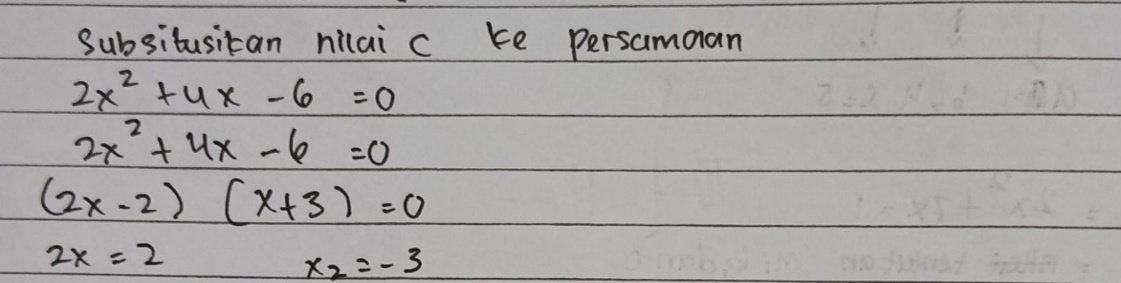 Subsitusikan nilai c ke persamaan
2x² + 4x - 6 = 0
2x² + 4x - 6 = 0
(2x - 2) (x + 3) = 0
2x = 2 x₂ = -3